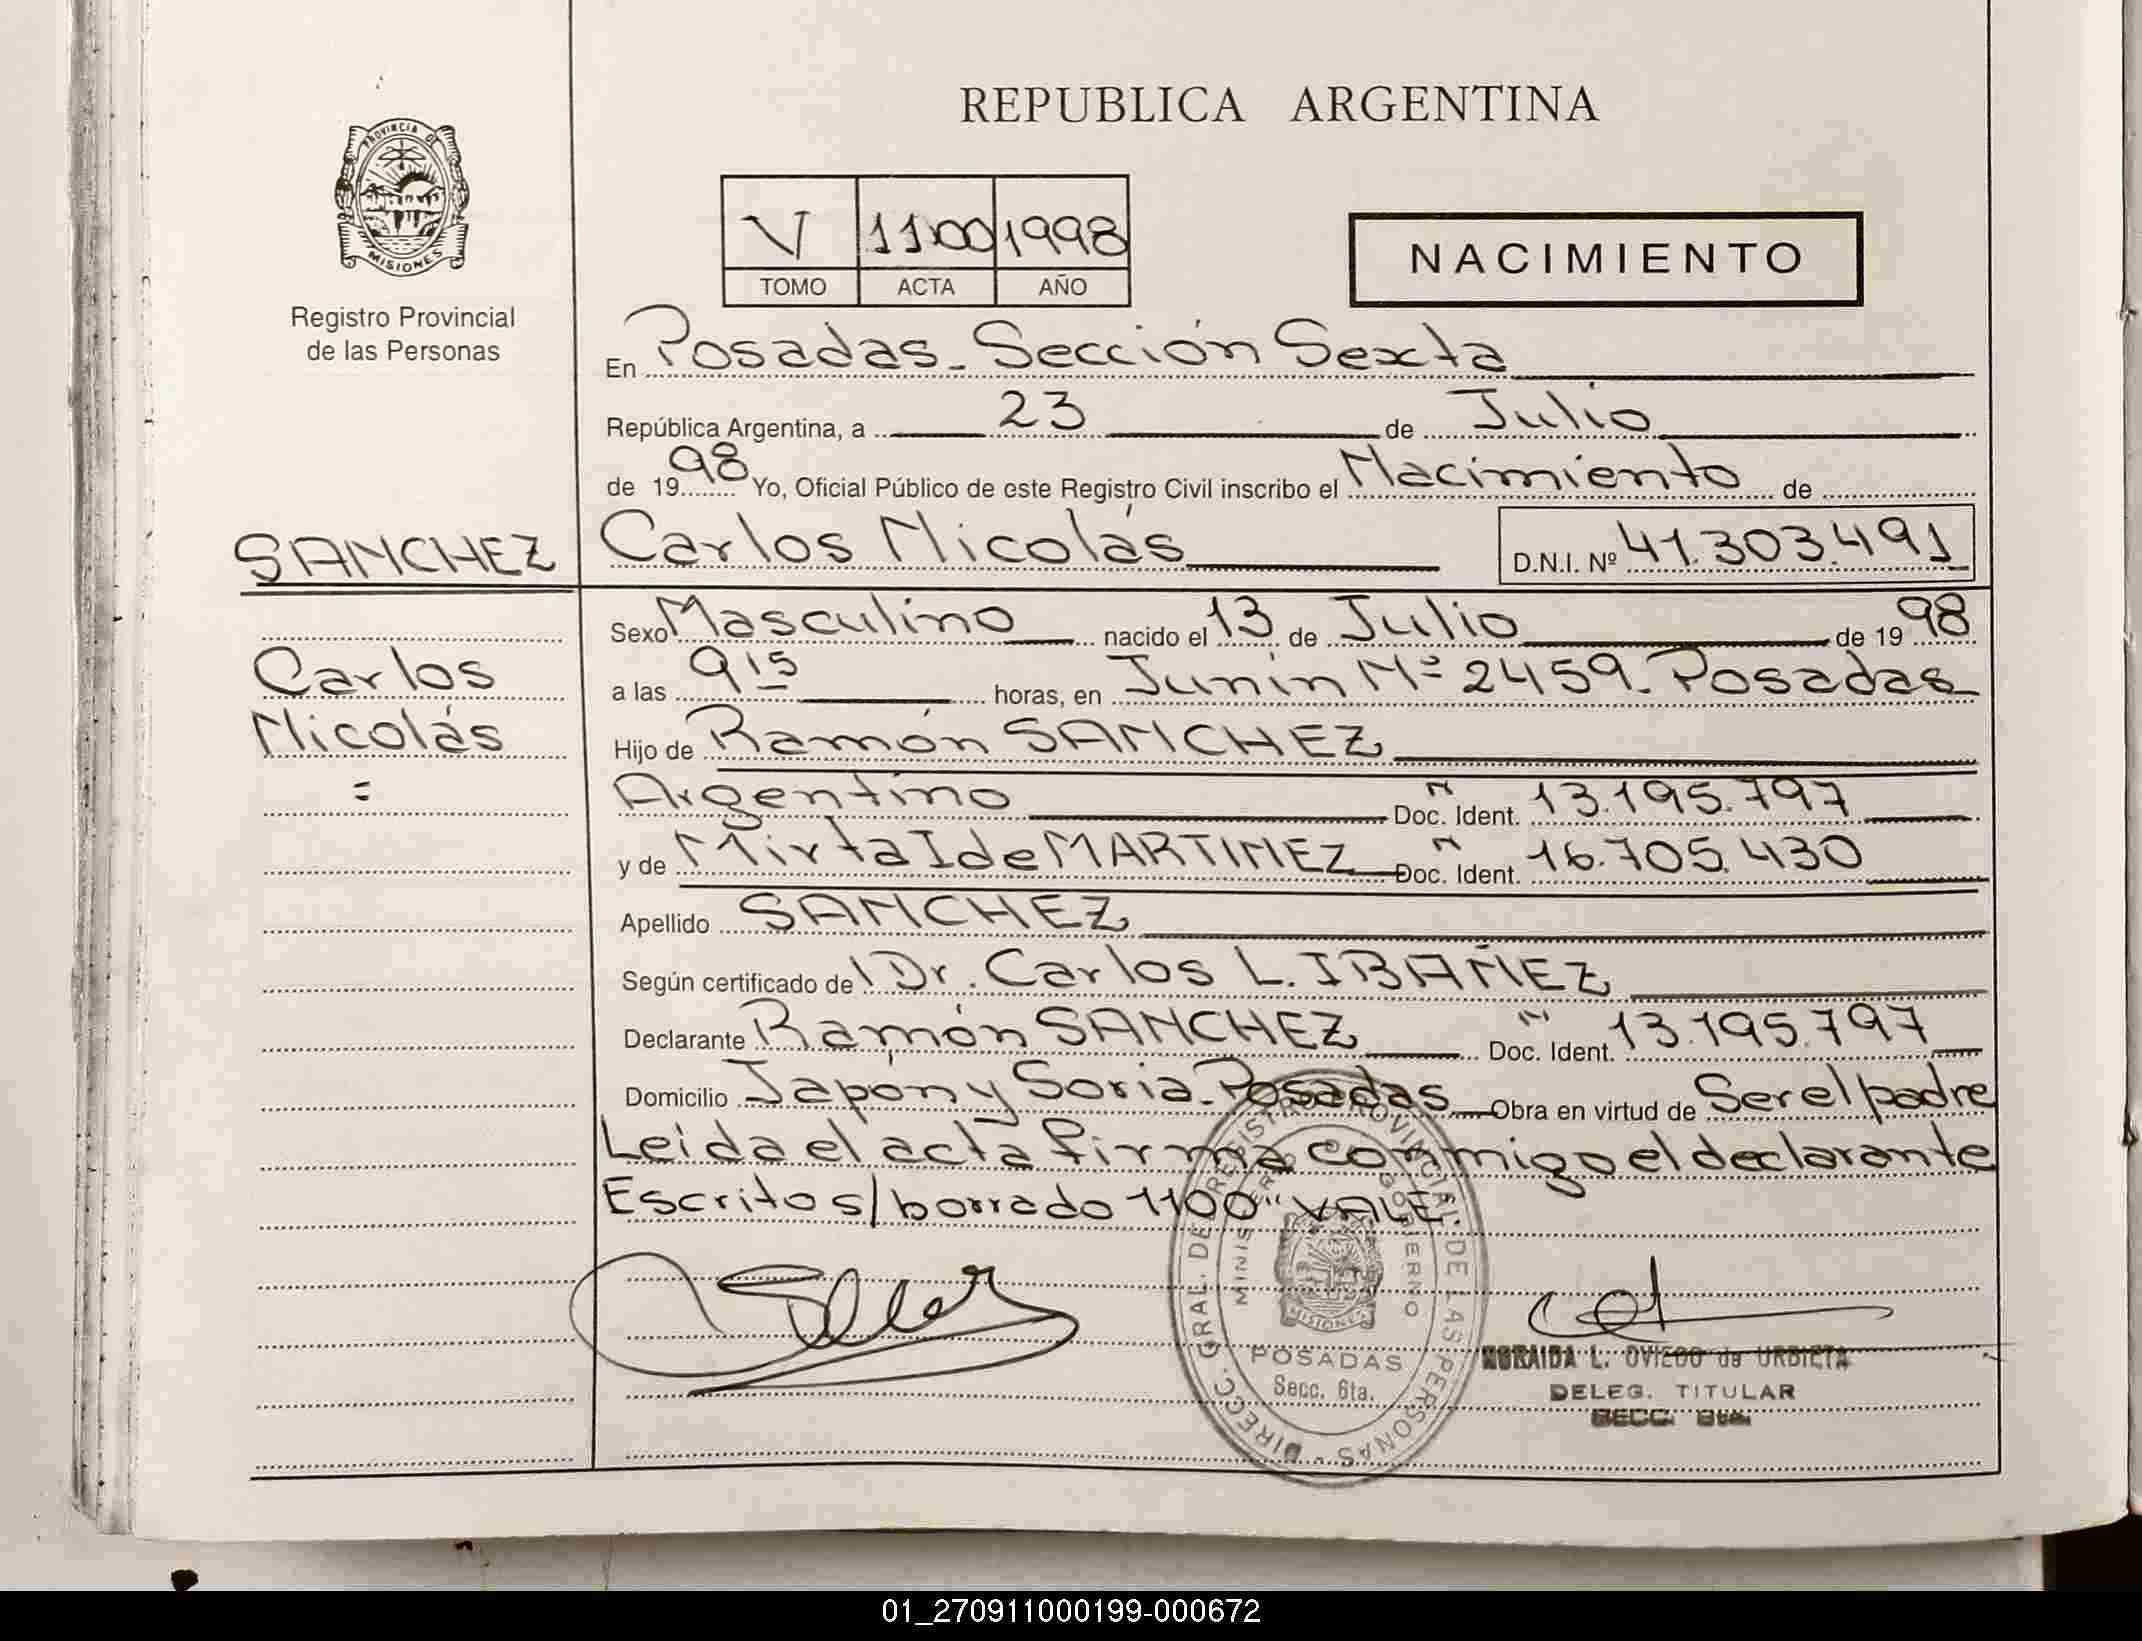 REPUBLICA ARGENTINA
PROVINCIA DE MISIONES
Registro Provincial
de las Personas
V 1100 1998
TOMO ACTA AÑO
NACIMIENTO
En Posadas - Sección Sexta
República Argentina, a 23 de Julio
de 1998 Yo, Oficial Público de este Registro Civil inscribo el Nacimiento de
SANCHEZ
Carlos
Nicolás
=
Carlos Nicolás D.N.I. Nº 41.303.491
Sexo Masculino nacido el 13 de Julio de 1998
a las 9,15 horas, en Junín Nº 2459 - Posadas
Hijo de Ramón SANCHEZ
Argentino Doc. Ident. N 13.195.797
y de Mirta Ide MARTINEZ Doc. Ident. N 16.705.430
Apellido SANCHEZ
Según certificado del Dr. Carlos L. IBAÑEZ
Declarante Ramón SANCHEZ Doc. Ident. N 13.195.797
Domicilio Japón y Soria - Posadas Obra en virtud de Ser el padre
Leida el acta firma conmigo el declarante
Escrito s/borrado 1100" VALE.
DIRECC. GRAL. DE REGISTRO PROVINCIAL DE LAS PERSONAS -
MINISTERIO DE GOBIERNO
MISIONES
POSADAS
Secc. 6ta.
NORAIDA L. OVIEDO de URBIETA
DELEG. TITULAR
SECC. 6ta.
01_270911000199-000672